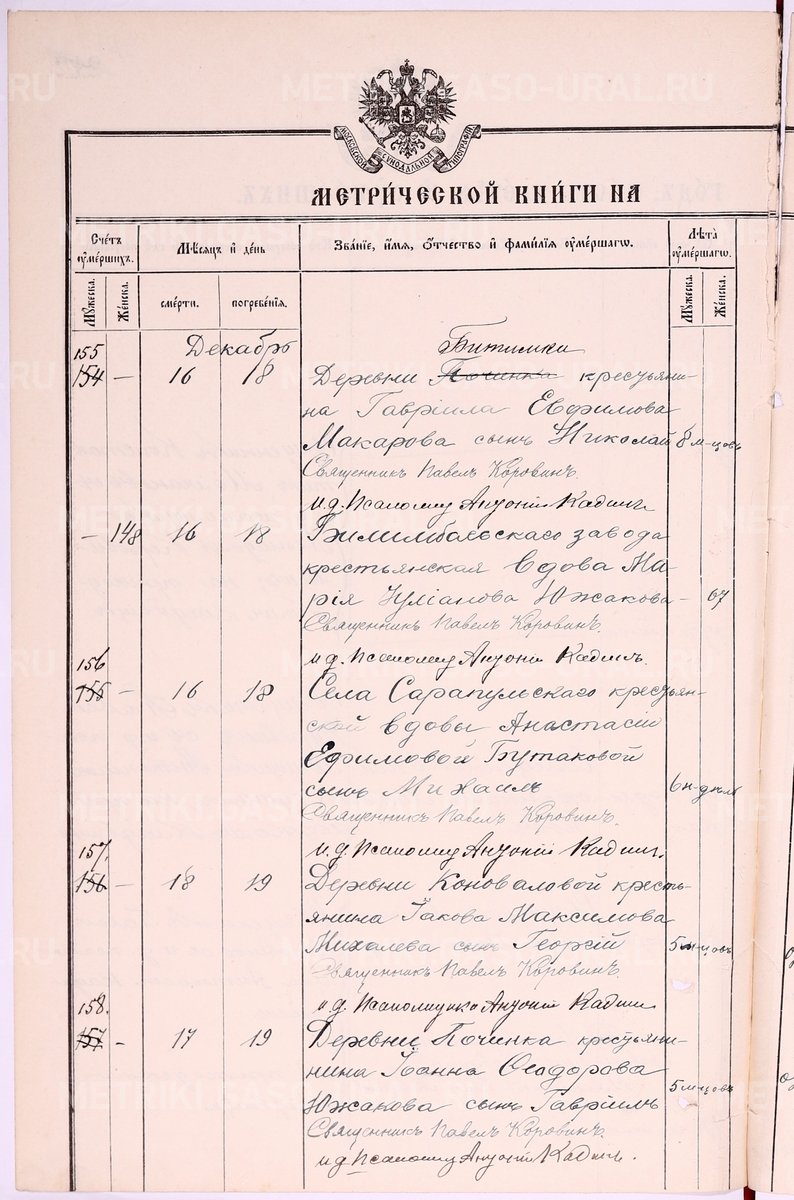 METRIKI.GASO-URAL.RU
МОСКОВСКОЙ СѴНОДАЛЬНОЙ ТИПОГРАФІИ
МЕТРИ́ЧЕСКОЙ КНИ́ГИ НА
Сче́тъ ᲂу҆ме́ршихъ.
Мѣ́сяцъ и҆ де́нь
Зва́нїе, и҆́мя, ѻ҆́тчество и҆ фами́лїя ᲂу҆ме́ршагѡ.
Лѣ́та ᲂу҆ме́ршагѡ.
Мꙋ́жеска.
Же́нска.
сме́рти.
погребе́нїя.
Мꙋ́жеска.
Же́нска.
155 Декабрь Битимки
154 — 16 18 Деревни Починка крестьяни-
на Гавріила Евфимова
Макарова сынъ Николай 8 м-цовъ
Священникъ Павелъ Коровинъ.
и.д. Псаломщ Антоній Кадш
— 148 16 18 Билимбаевскаго завода
крестьянская вдова Ма-
рія Иуліанова Южакова — 67
Священникъ Павелъ Коровинъ.
156 и д. Псаломщ Антоній
155 — 16 18 Села Сарапульскаго крестьян-
ской вдовы Анастасіи
Ефимовой Бутаковой
сынъ Михаилъ 6 н-дѣль
Священникъ Павелъ Коровинъ.
157. и.д. Псаломщ Антоній
156 — 18 19 Деревни Коноваловой кресть-
янина Іакова Максимова
Михалева сынъ Георгій 5 м-цовъ
Священникъ Павелъ Коровинъ.
158. и.д. Псаломщика Антоній
157 - 17 19 Деревни Починка крестьяни-
нина Іоанна Ѳеодорова
Южакова сынъ Гавріилъ 5 м-цовъ
Священникъ Павелъ Коровинъ.
и д Псаломщ Антоній